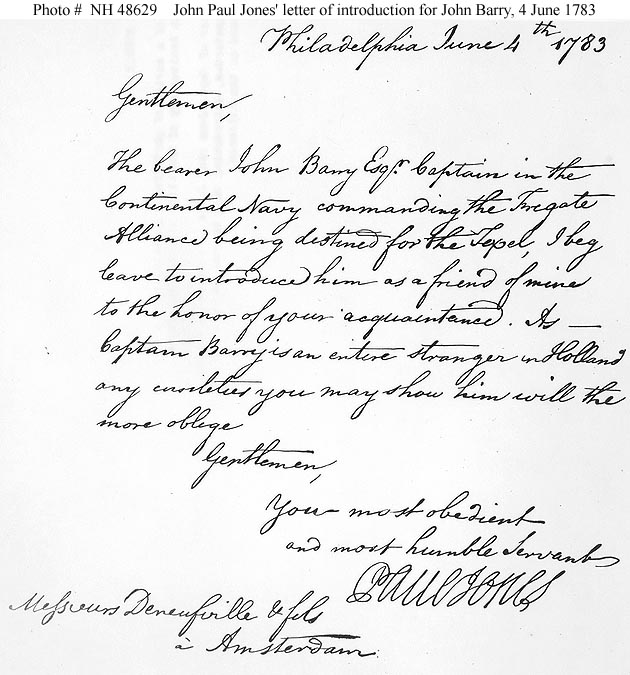 Photo # NH 48629 John Paul Jones' letter of introduction for John Barry, 4 June 1783
Philadelphia June 4th 1783
Gentlemen,
The bearer John Barry Esqr. Captain in the
Continental Navy commanding the Frigate
Alliance being destined for the Texel, I beg
leave to introduce him as a friend of mine
to the honor of your acquaintance. As —
Captain Barry is an entire stranger in Holland
any civileties you may show him will the
more oblege
Gentlemen,
Your most obedient
and most humble Servant
Paul Jones
Messieurs Deneufville & fils
à Amsterdam.